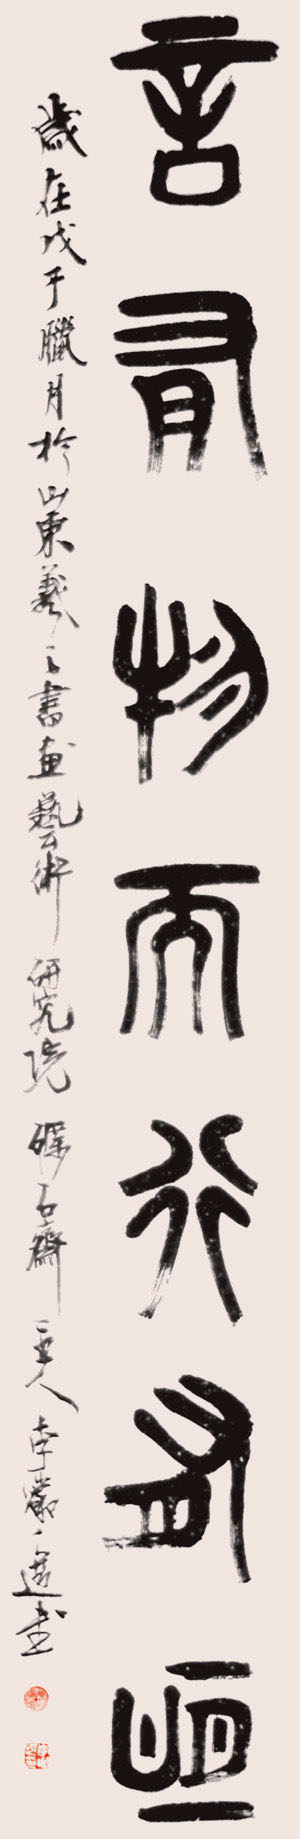 言有物而行有恆
歲在戊子臘月於山東羲之書畫藝術研究院礫石齋主人李嚴選書